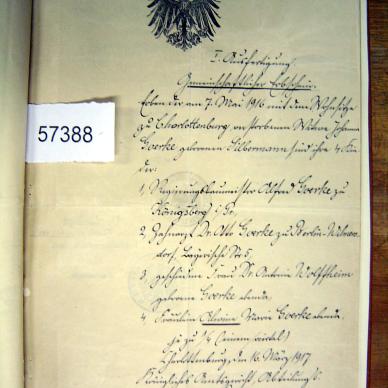 I. Ausfertigung.
Gemeinschaftlicher Erbschein.
Erben der am 7. Mai 1916 mit dem Wohnsitze
zu Charlottenburg verstorbenen Witwe Johanna
57388
Goerke geborenen Silbermann sind ihre 4 Kin
der:
1, Regierungsbaumeister Alfred Goerke zu
Königsberg i/Pr,
2, Zahnarzt Dr. Otto Goerke zu Berlin-Wilmers
dorf, Bayerische Str 5,
3, geschiedene Frau Dr Antonie Wolffheim
geborene Goerke ebenda,
4, Fräulein Marie Goerke ebenda,
je zu 1/4 (einem viertel)
Charlottenburg, den 16. März 1917
Königliches Amtsgericht, Abteilung